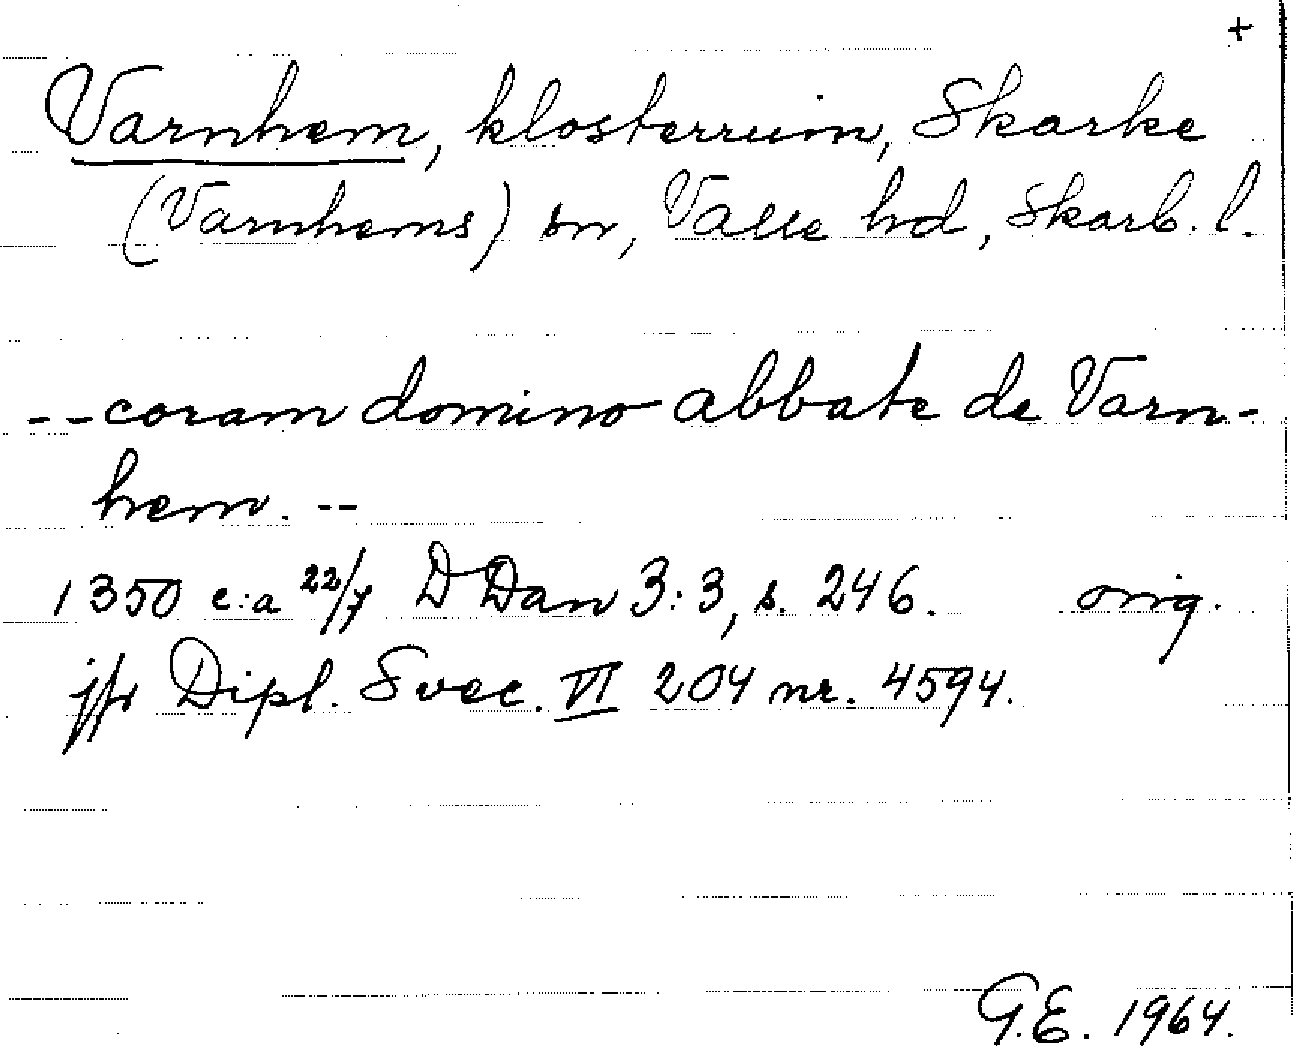 +
Varnhem, klosterruin, Skarke
(Varnhems) sn, Valle hd, Skarb. l.
--coram domino abbate de Varn-
hem. --
1350 c:a 22/7 DDan 3:3, s. 246. orig.
jfr Dipl. Svec. VI 204 nr. 4594.
G.E. 1964.